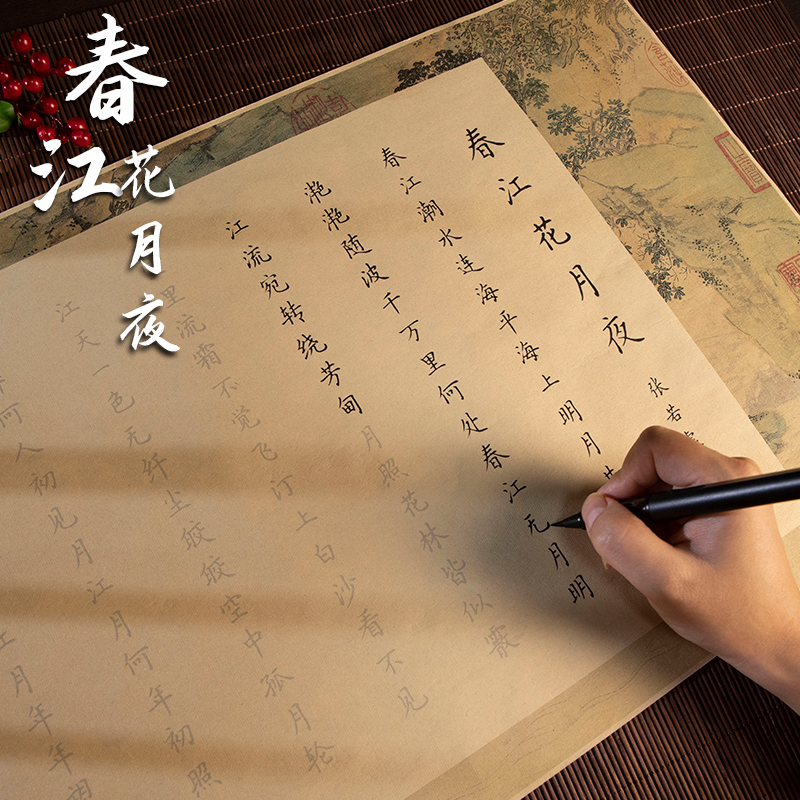 春江花月夜
春江花月夜
张若虚
春江潮水连海平海上明月共
滟滟随波千万里何处春江无月明
江流宛转绕芳甸月照花林皆似霰
里流霜不觉飞汀上白沙看不见
江天一色无纤尘皎皎空中孤月轮
何人初见月江月何年初照
江月年年